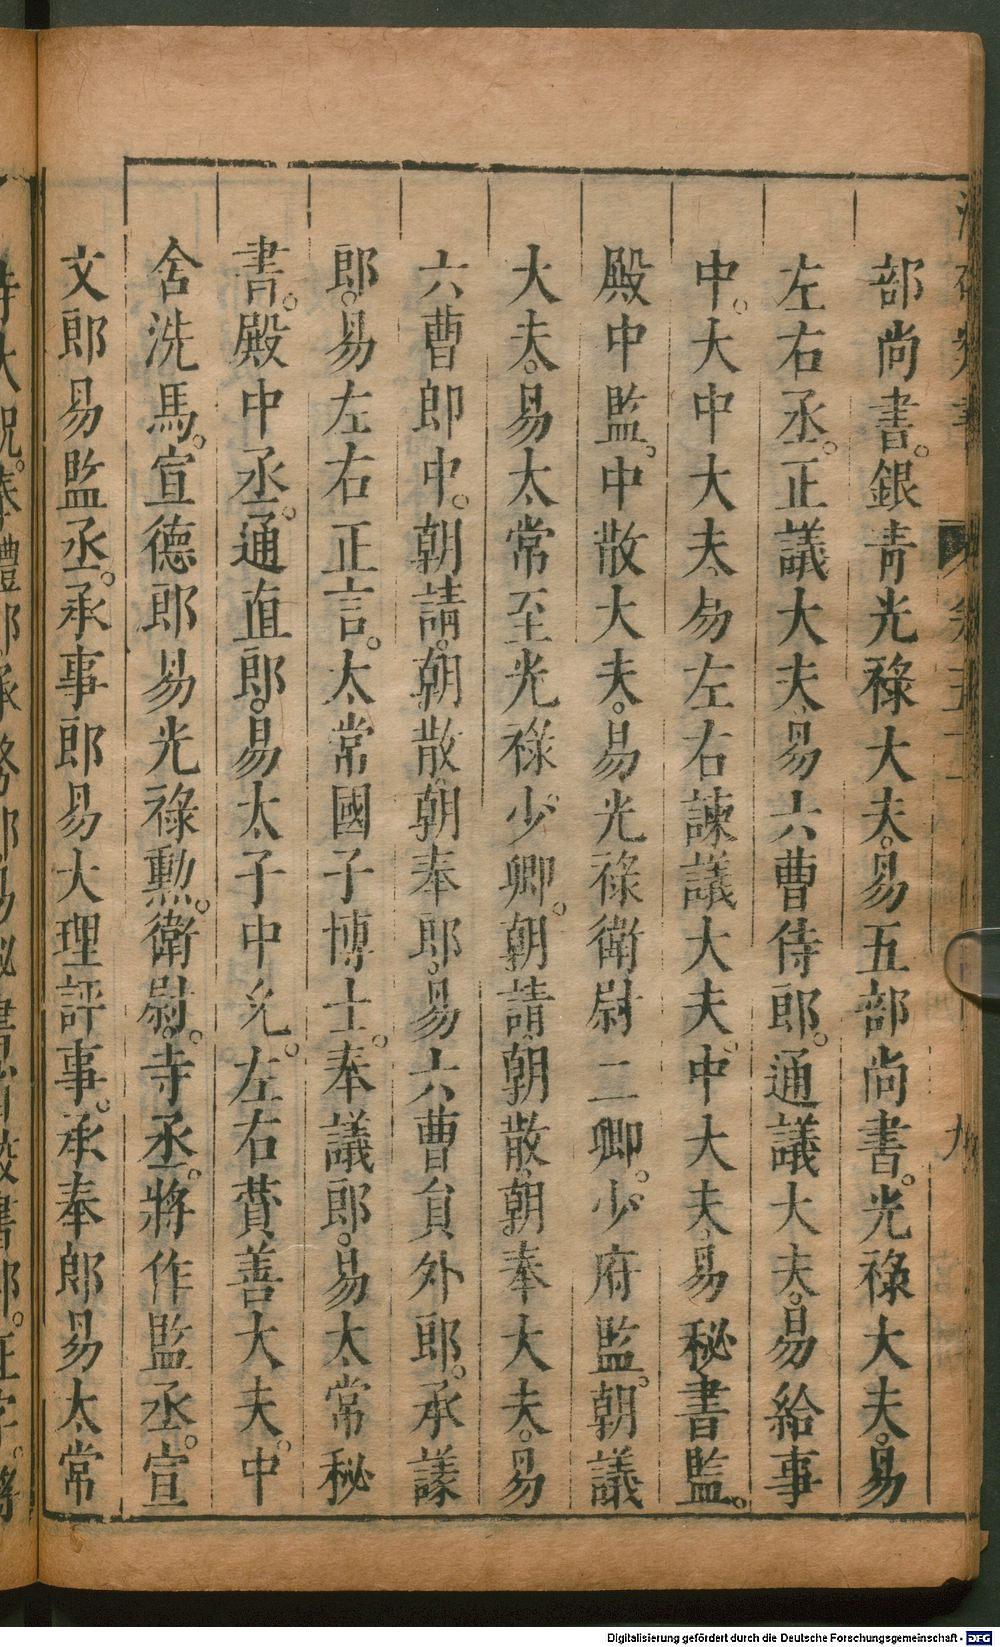 部尚書。銀青光祿大夫。易五部尚書。光祿大夫。易
左右丞。正議大夫。易六曹侍郎。通議大夫。易給事
中。大中大夫。易左右諫議大夫。中大夫。易秘書監。
殿中監。中散大夫。易光祿衛尉二卿。少府監。朝議
大夫。易太常至光祿少卿。朝請。朝散。朝奉大夫。易
六曹郎中。朝請。朝散。朝奉郎。易六曹員外郎。承議
郎。易左右正言。太常國子博士。奉議郎。易太常秘
書。殿中丞。通直郎。易太子中允。左右賛善大夫。中
舍洗馬。宣德郎易光祿勳。衛尉。寺丞。將作監丞。宣
文郎易監丞。承事郎易大理評事。承奉郎易太常
Digitalisierung gefördert durch die Deutsche Forschungsgemeinschaft - DFG